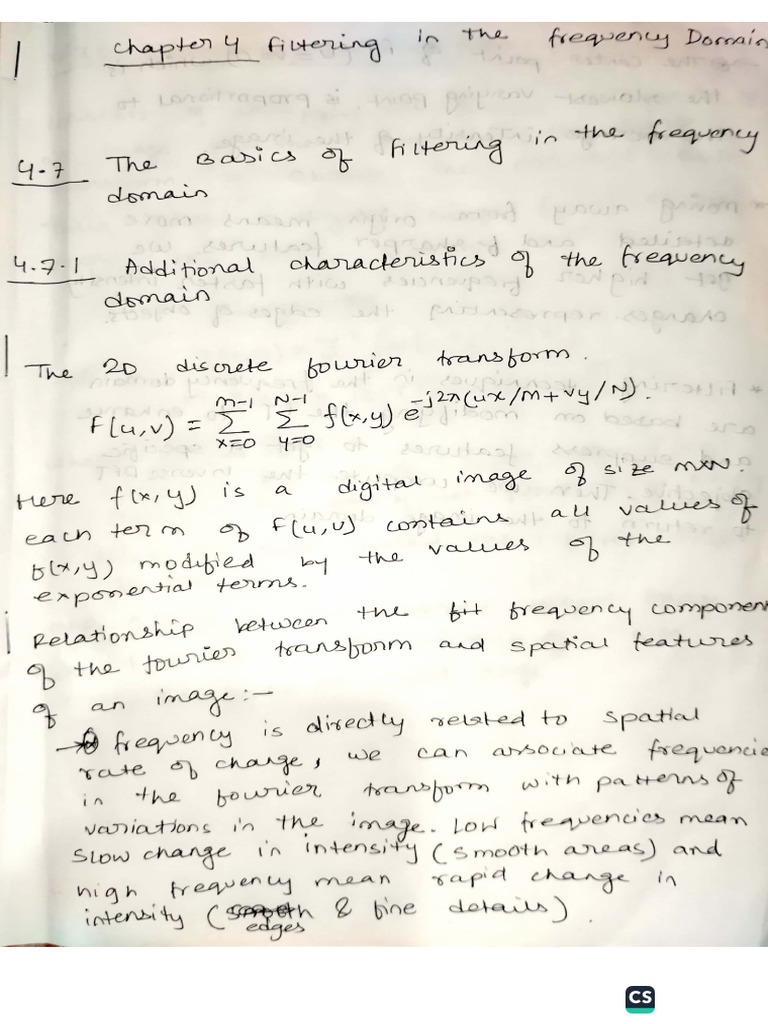 Chapter 4 Filtering in the frequency Domain
4.7 The Basics of Filtering in the frequency
domain
4.7.1 Additional characteristics of the frequency
domain
The 2D discrete fourier transform.
F(u,v) = M-1 Σ x=0 N-1 Σ y=0 f(x,y) e^-j2π(ux/M+vy/N).
Here f(x,y) is a digital image of size MXN.
each term of F(u,v) contains all values of
f(x,y) modified by the values of the
exponential terms.
Relationship between the fit frequency component
of the fourier transform and spatial features
of an image:-
→ frequency is directly related to spatial
rate of change, we can associate frequencie
in the fourier transform with patterns of
variations in the image. Low frequencies mean
slow change in intensity (smooth areas) and
high frequency mean rapid change in
intensity (smooth & fine details).
edges
CS